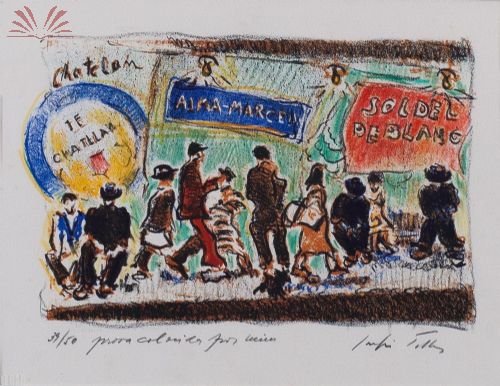 Chatelan
IE
CHATLLAN
ALMA-MARCEN
SOLDEL
DEBLANC
39/50 prova colorida por mim